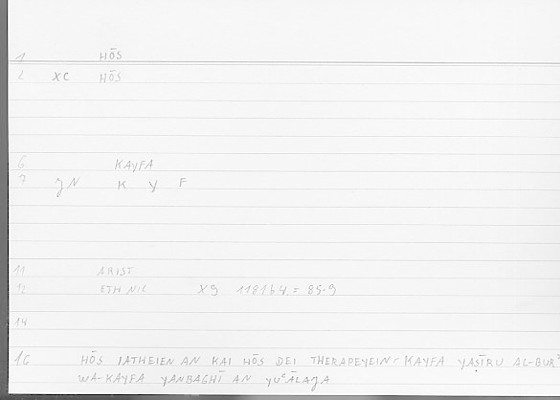 1 HŌS
2 XC HŌS
6 KAYFA
7 JN K Y F
11 ARIST
12 ETH NIC X9 1181b4 = 85-9
14
16 HŌS IATHEIEN AN KAI HŌS DEI THERAPEYEIN - KAYFA YAṢĪRU AL-BURʾ
WA-KAYFA YANBAGHĪ AN YUʿĀLAJA